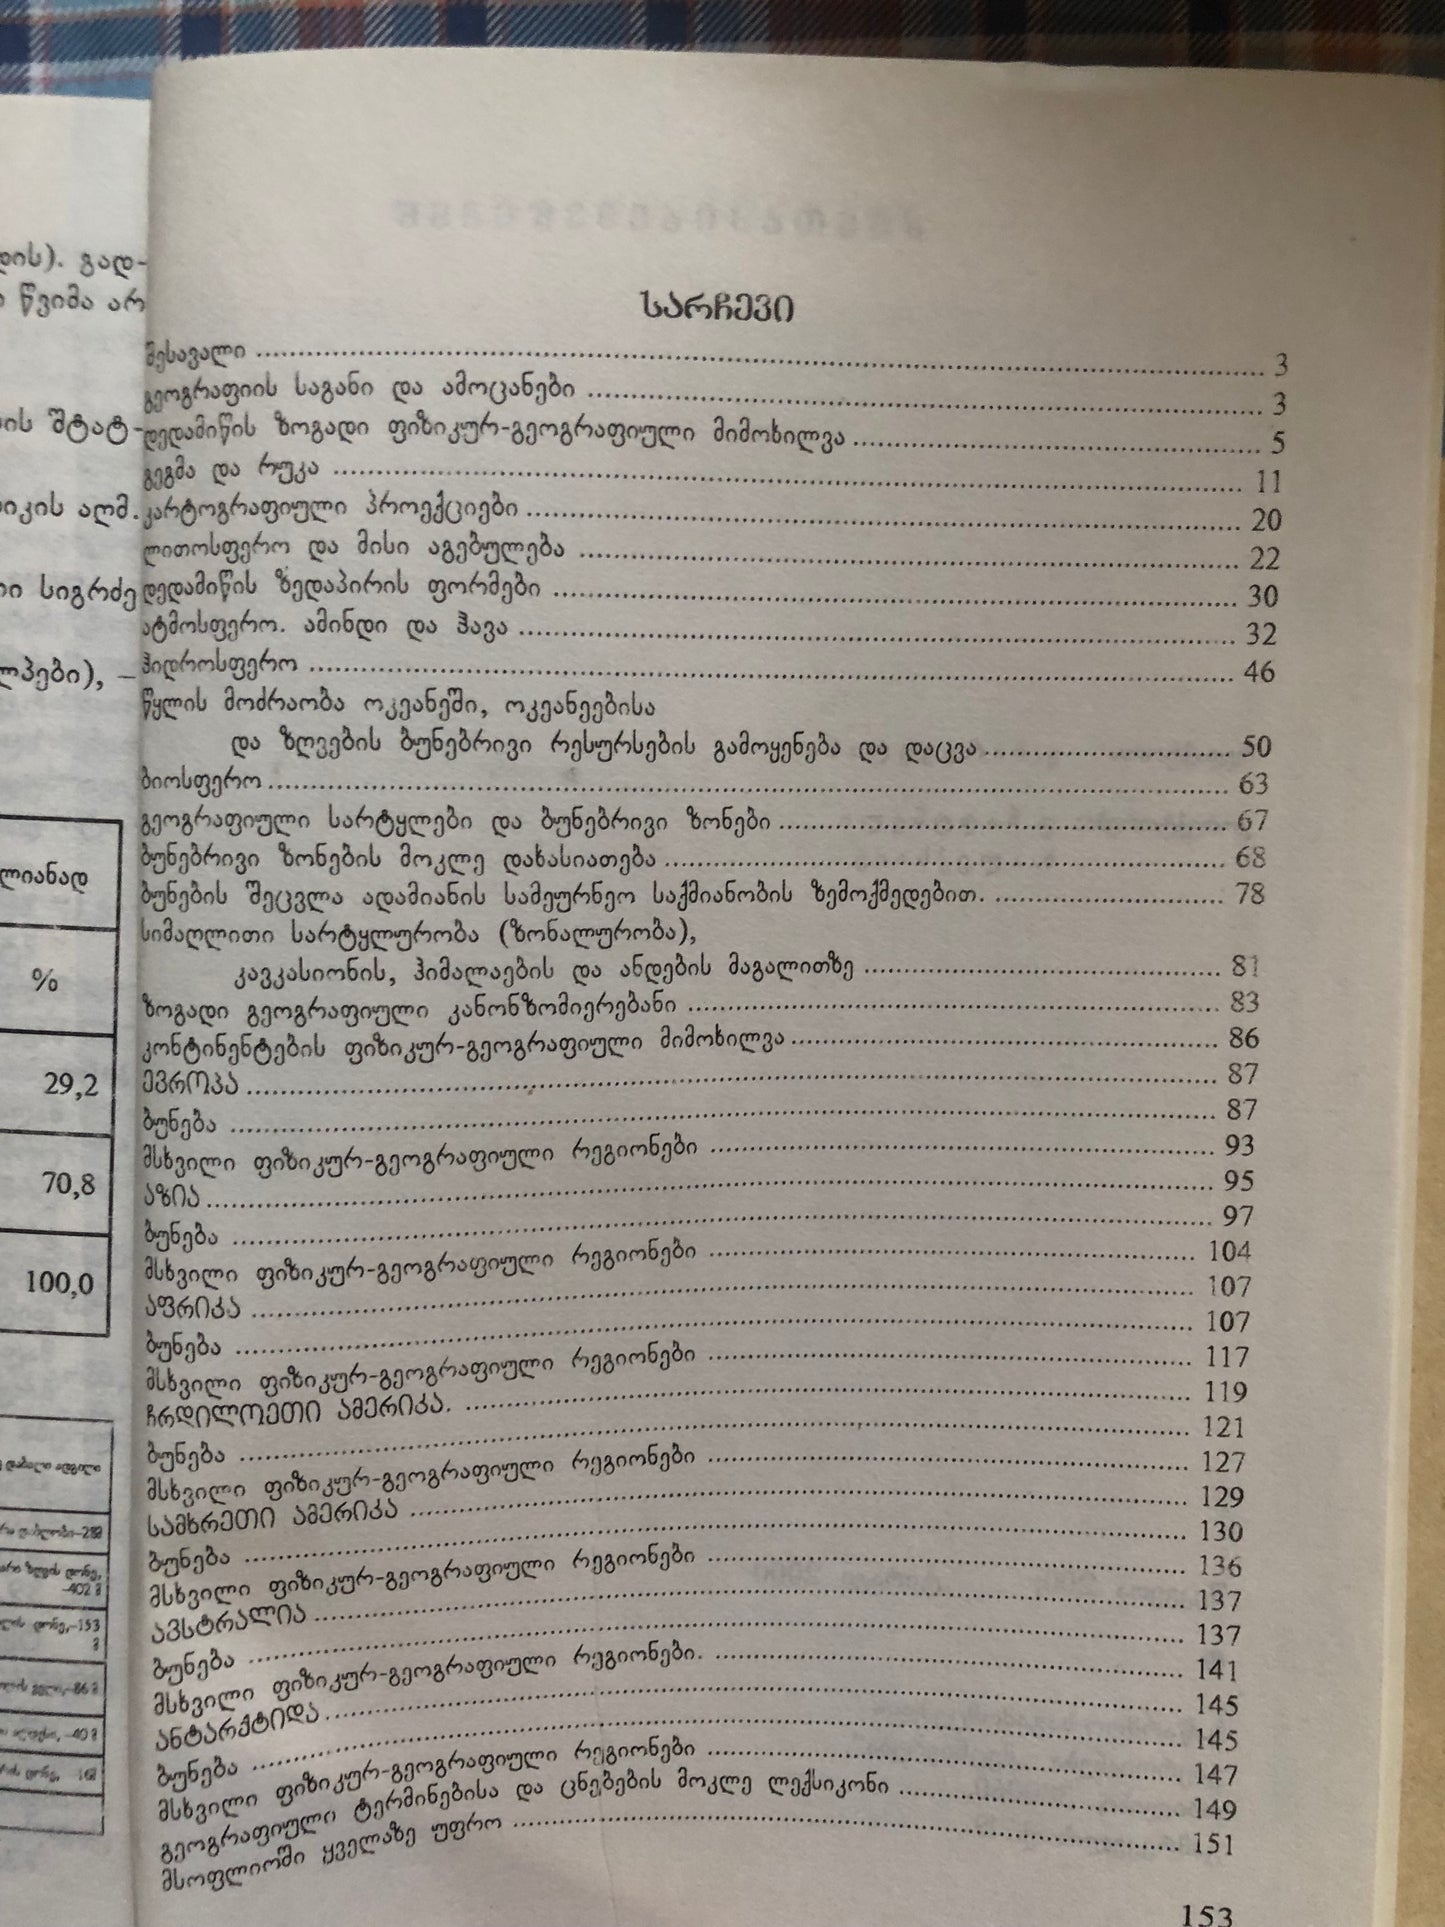 დის). გად-
წვიმა არ
ის შტატ-
იკის აღმ.
ი სიგრძე
ლპები), –
ლიანად
%
29,2
70,8
100,0
დაბალი ადგილი
-402 მ
სარჩევი
შესავალი ........ 3
გეოგრაფიის საგანი და ამოცანები ........ 3
დედამიწის ზოგადი ფიზიკურ-გეოგრაფიული მიმოხილვა ........ 5
გეგმა და რუკა ........ 11
კარტოგრაფიული პროექციები ........ 20
ლითოსფერო და მისი აგებულება ........ 22
დედამიწის ზედაპირის ფორმები ........ 30
ატმოსფერო. ამინდი და ჰავა ........ 32
ჰიდროსფერო ........ 46
წყლის მოძრაობა ოკეანეში, ოკეანეებისა
და ზღვების ბუნებრივი რესურსების გამოყენება და დაცვა ........ 50
ბიოსფერო ........ 63
გეოგრაფიული სარტყლები და ბუნებრივი ზონები ........ 67
ბუნებრივი ზონების მოკლე დახასიათება ........ 68
ბუნების შეცვლა ადამიანის სამეურნეო საქმიანობის ზემოქმედებით. ........ 78
სიმაღლითი სარტყლურობა (ზონალურობა),
კავკასიონის, ჰიმალაების და ანდების მაგალითზე ........ 81
ზოგადი გეოგრაფიული კანონზომიერებანი ........ 83
კონტინენტების ფიზიკურ-გეოგრაფიული მიმოხილვა ........ 86
ევროპა ........ 87
ბუნება ........ 87
მსხვილი ფიზიკურ-გეოგრაფიული რეგიონები ........ 93
აზია ........ 95
ბუნება ........ 97
მსხვილი ფიზიკურ-გეოგრაფიული რეგიონები ........ 104
აფრიკა ........ 107
ბუნება ........ 107
მსხვილი ფიზიკურ-გეოგრაფიული რეგიონები ........ 117
ჩრდილოეთი ამერიკა. ........ 119
ბუნება ........ 121
მსხვილი ფიზიკურ-გეოგრაფიული რეგიონები ........ 127
სამხრეთი ამერიკა ........ 129
ბუნება ........ 130
მსხვილი ფიზიკურ-გეოგრაფიული რეგიონები ........ 136
ავსტრალია ........ 137
ბუნება ........ 137
მსხვილი ფიზიკურ-გეოგრაფიული რეგიონები. ........ 141
ანტარქტიდა ........ 145
ბუნება ........ 145
მსხვილი ფიზიკურ-გეოგრაფიული რეგიონები ........ 147
გეოგრაფიული ტერმინებისა და ცნებების მოკლე ლექსიკონი ........ 149
მსოფლიოში ყველაზე უფრო ........ 151
153